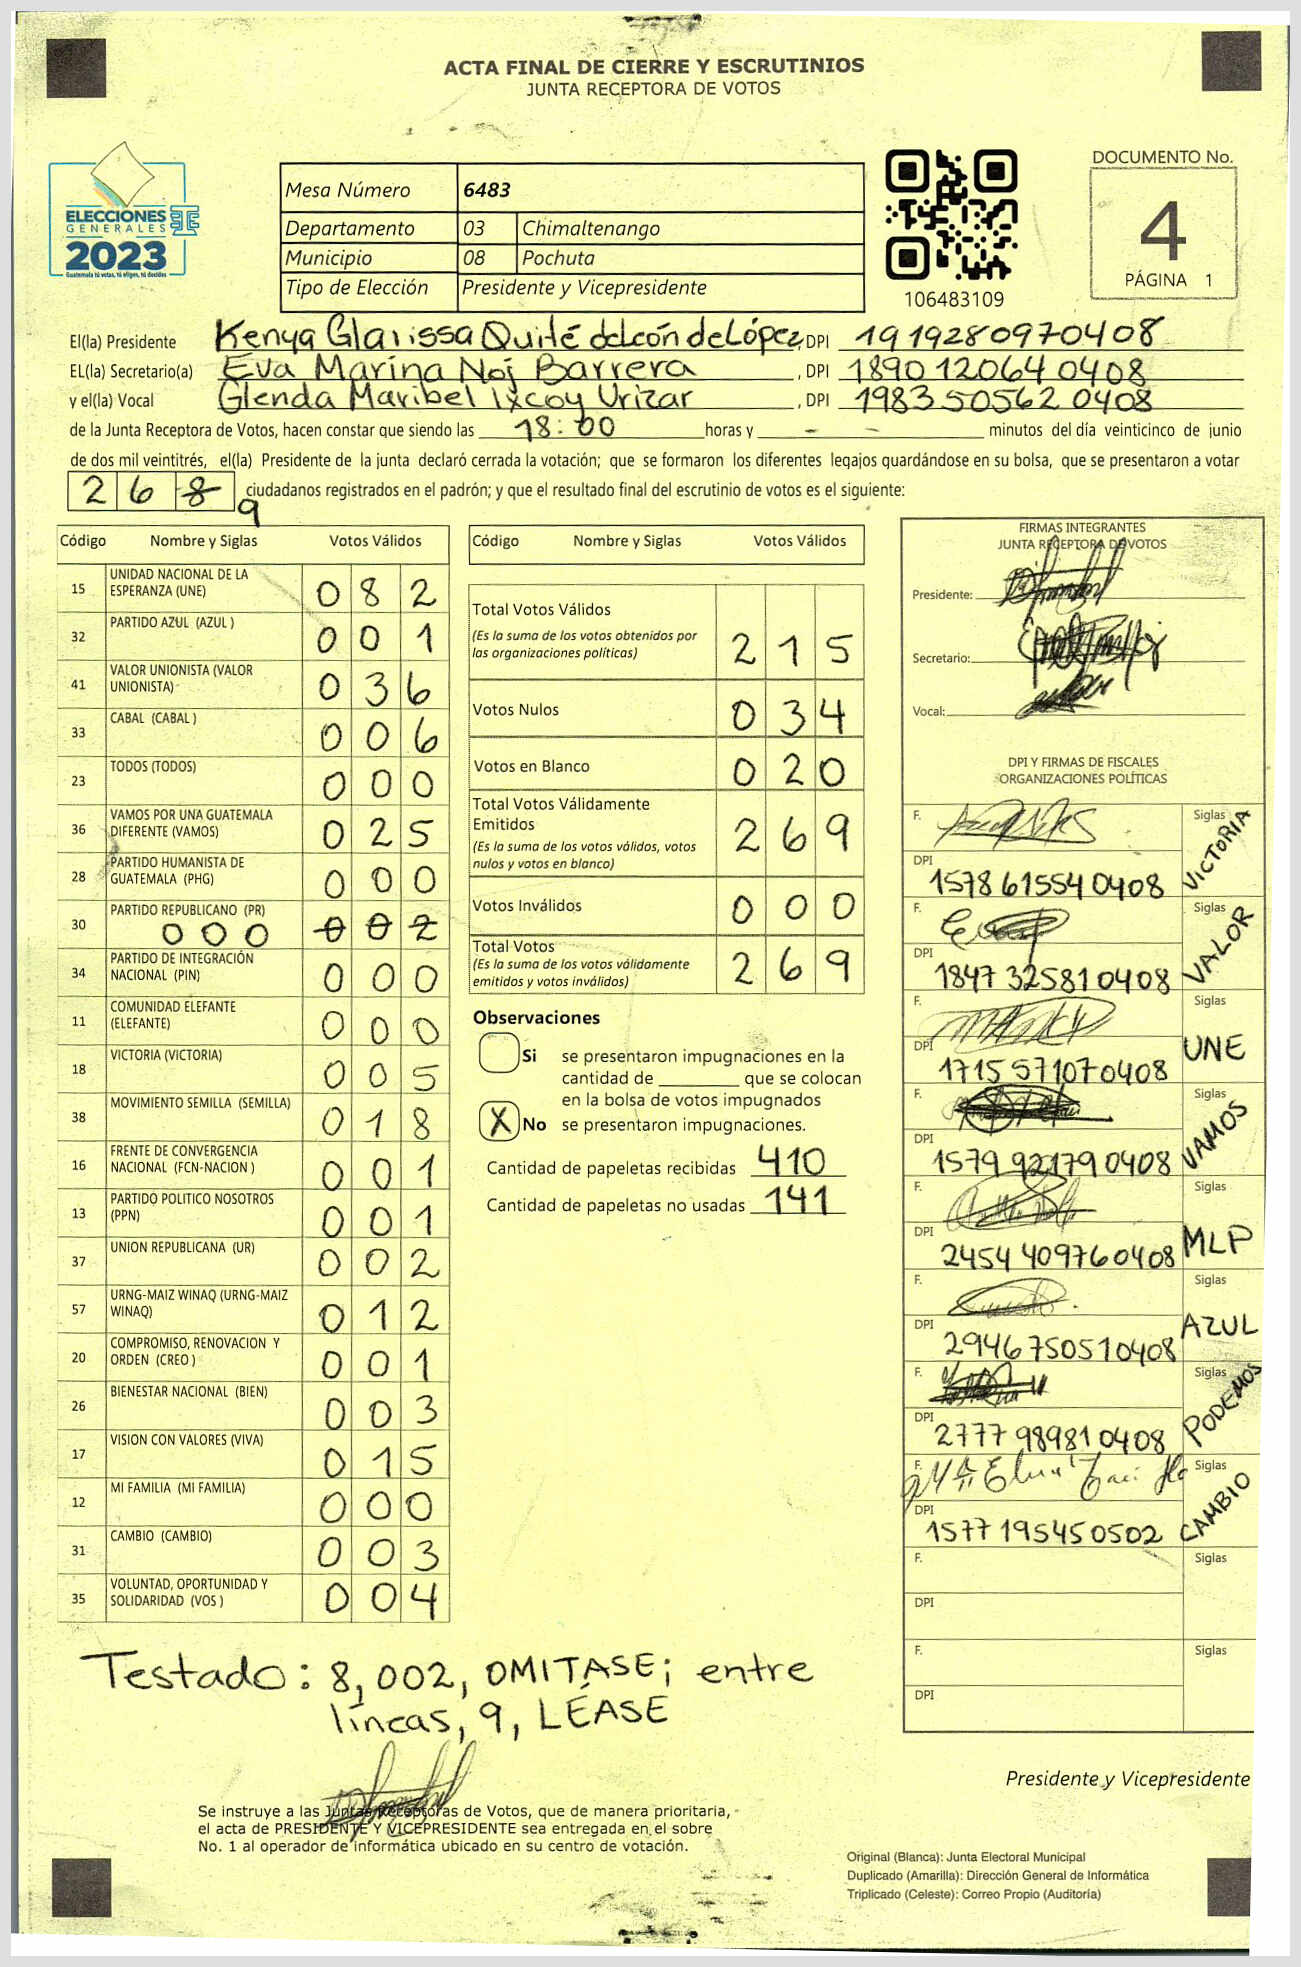 ACTA FINAL DE CIERRE Y ESCRUTINIOS
JUNTA RECEPTORA DE VOTOS
ELECCIONES
GENERALES
2023
Guatemala tú votas, tú eliges, tú decides
Mesa Número 6483
Departamento 03 Chimaltenango
Municipio 08 Pochuta
Tipo de Elección Presidente y Vicepresidente
106483109
DOCUMENTO No.
4
PÁGINA 1
El(la) Presidente Kenya Glarissa Quité deleón de López, DPI 1919280970408
EL(la) Secretario(a) Eva Marina Noj Barrera , DPI 1890120640408
y el(la) Vocal Glenda Maribel Ixcoy Urizar , DPI 1983505620408
de la Junta Receptora de Votos, hacen constar que siendo las 18:00 horas y - - minutos del día veinticinco de junio
de dos mil veintitrés, el(la) Presidente de la junta declaró cerrada la votación; que se formaron los diferentes legajos guardándose en su bolsa, que se presentaron a votar
2 6 8 9 ciudadanos registrados en el padrón; y que el resultado final del escrutinio de votos es el siguiente:
Código Nombre y Siglas Votos Válidos
15 UNIDAD NACIONAL DE LA ESPERANZA (UNE) 0 8 2
32 PARTIDO AZUL (AZUL ) 0 0 1
41 VALOR UNIONISTA (VALOR UNIONISTA) 0 3 6
33 CABAL (CABAL ) 0 0 6
23 TODOS (TODOS) 0 0 0
36 VAMOS POR UNA GUATEMALA DIFERENTE (VAMOS) 0 2 5
28 PARTIDO HUMANISTA DE GUATEMALA (PHG) 0 0 0
30 PARTIDO REPUBLICANO (PR) 0 0 0 0 0 2
34 PARTIDO DE INTEGRACIÓN NACIONAL (PIN) 0 0 0
11 COMUNIDAD ELEFANTE (ELEFANTE) 0 0 0
18 VICTORIA (VICTORIA) 0 0 5
38 MOVIMIENTO SEMILLA (SEMILLA) 0 1 8
16 FRENTE DE CONVERGENCIA NACIONAL (FCN-NACION ) 0 0 1
13 PARTIDO POLITICO NOSOTROS (PPN) 0 0 1
37 UNION REPUBLICANA (UR) 0 0 2
57 URNG-MAIZ WINAQ (URNG-MAIZ WINAQ) 0 1 2
20 COMPROMISO, RENOVACION Y ORDEN (CREO ) 0 0 1
26 BIENESTAR NACIONAL (BIEN) 0 0 3
17 VISION CON VALORES (VIVA) 0 1 5
12 MI FAMILIA (MI FAMILIA) 0 0 0
31 CAMBIO (CAMBIO) 0 0 3
35 VOLUNTAD, OPORTUNIDAD Y SOLIDARIDAD (VOS ) 0 0 4
Código Nombre y Siglas Votos Válidos
Total Votos Válidos 2 1 5
(Es la suma de los votos obtenidos por
las organizaciones políticas)
Votos Nulos 0 3 4
Votos en Blanco 0 2 0
Total Votos Válidamente
Emitidos 2 6 9
(Es la suma de los votos válidos, votos
nulos y votos en blanco)
Votos Inválidos 0 0 0
Total Votos 2 6 9
(Es la suma de los votos válidamente
emitidos y votos inválidos)
Observaciones
Si se presentaron impugnaciones en la
cantidad de ________ que se colocan
en la bolsa de votos impugnados
X No se presentaron impugnaciones.
Cantidad de papeletas recibidas 410
Cantidad de papeletas no usadas 141
FIRMAS INTEGRANTES
JUNTA RECEPTORA DE VOTOS
Presidente:
Secretario:
Vocal:
DPI Y FIRMAS DE FISCALES
ORGANIZACIONES POLÍTICAS
F. Siglas VICTORIA
DPI 1578615540408
F. Siglas VALOR
DPI 1847325810408
F. Siglas UNE
DPI 1715571070408
F. Siglas VAMOS
DPI 1579921790408
F. Siglas MLP
DPI 2454409760408
F. Siglas AZUL
DPI 2946750510408
F. Siglas PODEMOS
DPI 2777989810408
F. Siglas CAMBIO
DPI 1577195450502
F. Siglas
DPI
F. Siglas
DPI
Testado: 8, 002, OMITASE; entre
líneas, 9, LÉASE
Se instruye a las Juntas Receptoras de Votos, que de manera prioritaria,
el acta de PRESIDENTE Y VICEPRESIDENTE sea entregada en el sobre
No. 1 al operador de informática ubicado en su centro de votación.
Presidente y Vicepresidente
Original (Blanca): Junta Electoral Municipal
Duplicado (Amarilla): Dirección General de Informática
Triplicado (Celeste): Correo Propio (Auditoría)